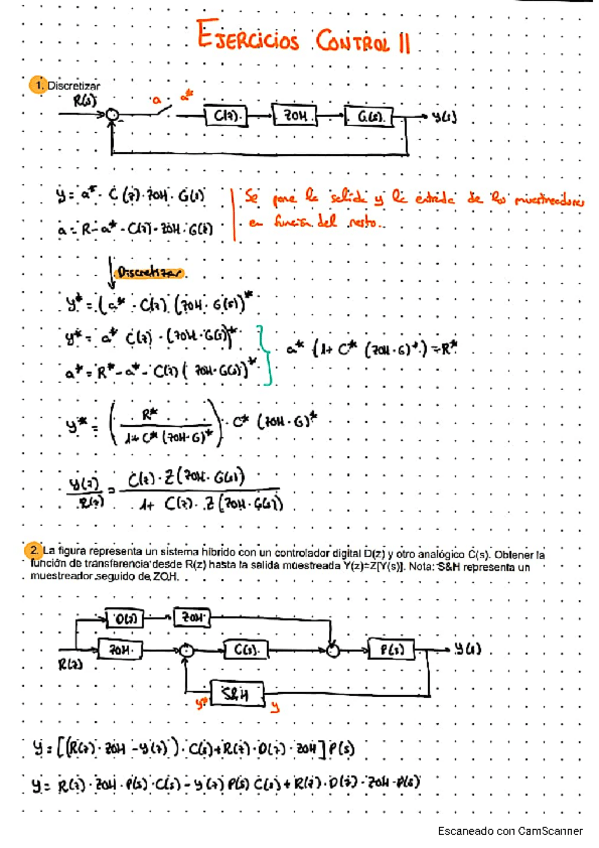 EJERCICIOS CONTROL II
1. Discretizar
R(s) a a* C(z) ZOH G(s) y(s)
y = a* · C(z) · ZOH · G(s)
Se pone la salida y la entrada de los muestreadores
a = R - a* · C(z) · ZOH · G(s)
en función del resto.
Discretizar
y* = (a* · C(z) (ZOH · G(s))*
y* = a* C(z) · (ZOH · G(s))*
a* (1 + C* (ZOH · G)*) = R*
a* = R* - a* - C(z) (ZOH · G(s))*
y* = (R* / 1 + C* (ZOH · G)*) · C* (ZOH · G)*
y(z) / R(z) = C(z) · Z(ZOH · G(s)) / 1 + C(z) · Z(ZOH · G(s))
2. La figura representa un sistema híbrido con un controlador digital D(z) y otro analógico C(s). Obtener la
función de transferencia desde R(z) hasta la salida muestreada Y(z)=Z[Y(s)]. Nota: S&H representa un
muestreador seguido de ZOH.
D(z) ZOH
R(z) ZOH C(s) P(s) y(s)
y* S&H y
y = [(R(z) · ZOH - y(z)) · C(s) + R(z) · D(z) · ZOH] P(s)
y = R(z) · ZOH · P(s) · C(s) - y(z) P(s) C(s) + R(z) · D(z) · ZOH · P(s)
Escaneado con CamScanner